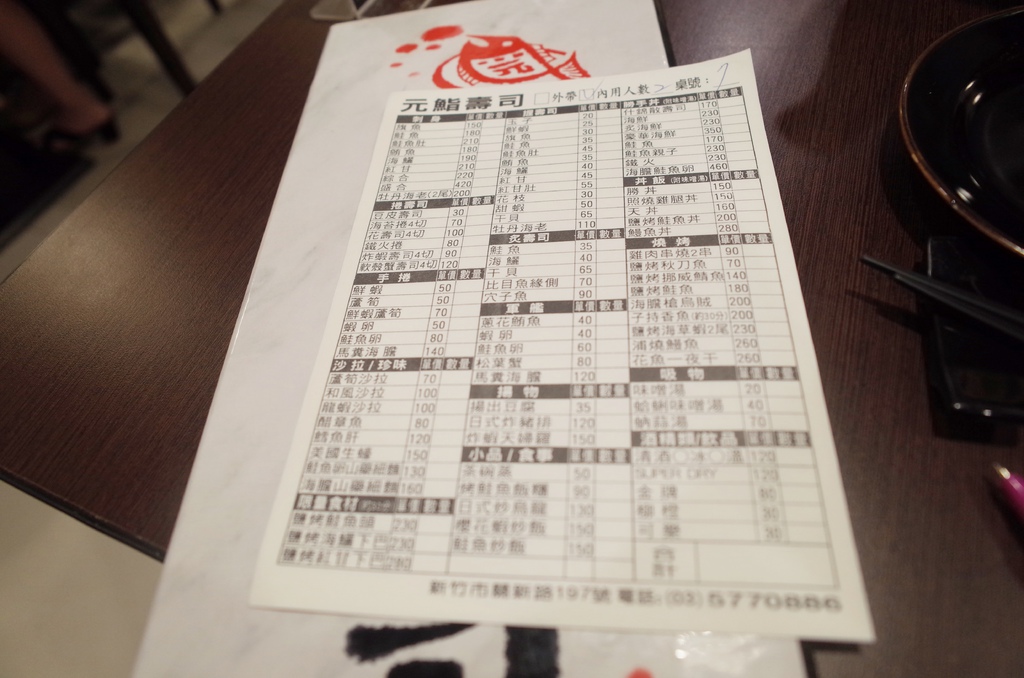 元鮨壽司 □外帶 □內用人數 2 桌號: 1
刺身 單價 數量
旗魚 150
鮭魚 180
鮭魚肚 210
鮪魚 180
海鱺 190
紅甘 210
綜合 220
盛合 420
牡丹海老(2尾) 200
捲壽司 單價 數量
豆皮壽司 30
海苔捲4切 70
花壽司4切 100
鐵火捲 80
炸蝦壽司4切 90
軟殼蟹壽司4切 120
手捲 單價 數量
鮮蝦 50
蘆筍 50
鮮蝦蘆筍 70
蝦卵 50
鮭魚卵 80
馬糞海膽 140
沙拉/珍味 單價 數量
蘆筍沙拉 70
和風沙拉 100
龍蝦沙拉 100
醋章魚 80
鱈魚肝 120
美國生蠔 150
鮭魚卵山藥細麵 130
海膽山藥細麵 160
限量食材 單價 數量
鹽烤鮭魚頭 230
鹽烤海鱺下巴 230
鹽烤紅甘下巴 280
握壽司 單價 數量
玉子 20
鮮蝦 25
旗魚 30
鮭魚 35
鮭魚肚 45
鮪魚 35
海鱺 40
紅甘 45
紅甘肚 55
花枝 30
甜蝦 50
干貝 65
牡丹海老 110
炙壽司 單價 數量
鮭魚 35
海鱺 40
干貝 65
比目魚緣側 70
穴子魚 90
軍艦 單價 數量
蔥花鮪魚 40
蝦卵 40
鮭魚卵 60
松葉蟹 80
馬糞海膽 120
揚物 單價 數量
揚出豆腐 35
日式炸豬排 120
炸蝦天婦羅 150
小品/食事 單價 數量
茶碗蒸 50
烤鮭魚飯糰 90
日式炒烏龍 130
櫻花蝦炒飯 150
鮭魚炒飯 150
勝手丼(附味噌湯) 單價 數量
什錦散壽司 170
海鮮 230
炙海鮮 230
豪華海鮮 350
鮭魚 170
鮭魚親子 230
鐵火 230
海膽鮭魚卵 460
丼飯(附味噌湯) 單價 數量
勝丼 150
照燒雞腿丼 150
天丼 160
鹽烤鮭魚丼 200
鰻魚丼 280
燒烤 單價 數量
雞肉串燒2串 90
鹽烤秋刀魚 70
鹽烤挪威鯖魚 140
鹽烤鮭魚 180
海膽槍烏賊 200
子持香魚(約30分) 200
鹽烤海草蝦2尾 230
蒲燒鰻魚 260
花魚一夜干 260
吸物 單價 數量
味噌湯 20
蛤蜊味噌湯 40
蚋蒜湯 70
酒精類/飲品 單價 數量
清酒 □冰 □溫 120
SUPER DRY 120
金牌 80
柳橙 30
可樂 30
合計
新竹市關新路197號 電話:(03)5770886